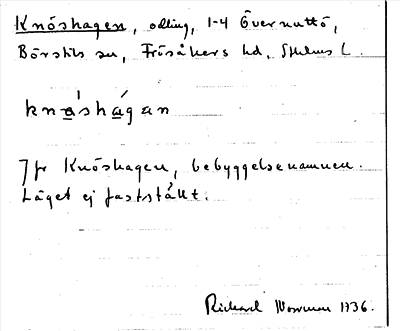 Knöshagen, odling, 1-4 Övernuttö,
Börstils sn, Frösåkers hd, Sthlms l.
knäshágan
Jfr Knöshagen, bebyggelsenamnen.
Läget ej fastställt.
Richard 1936.